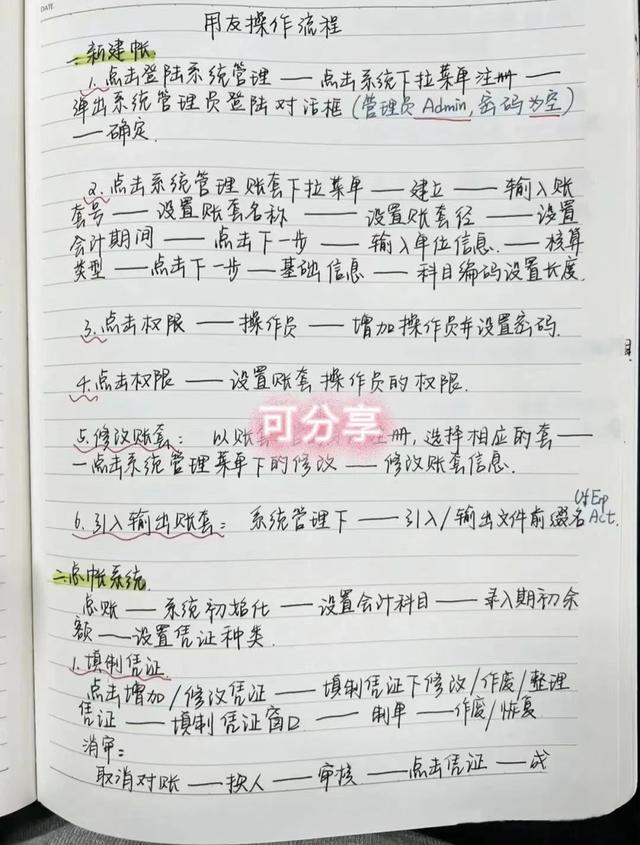 DATE
用友操作流程
一新建帐
1.点击登陆系统管理——点击系统下拉菜单注册——
弹出系统管理员登陆对话框(管理员Admin,密码为空)
——确定.
2.点击系统管理账套下拉菜单——建立——输入账
套号——设置账套名称——设置账套径——设置
会计期间——点击下一步——输入单位信息.——核算
类型——点击下一步——基础信息——科目编码设置长度.
3.点击权限——操作员——增加操作员并设置密码.
4.点击权限——设置账套操作员的权限.
可分享
5.修改账套:以账套注册,选择相应的套——
—点击系统管理菜单下的修改——修改账套信息.
6.引入输出账套:系统管理下——引入/输出文件前缀名UfErp
Act.
二.总帐系统.
总账——系统初始化——设置会计科目——录入期初余
额——设置凭证种类.
1.填制凭证.
点击增加/修改凭证——填制凭证下修改/作废/整理
凭证——填制凭证窗口——制单——作废/恢复
消审:
取消对账——换人——审核——点击凭证——成